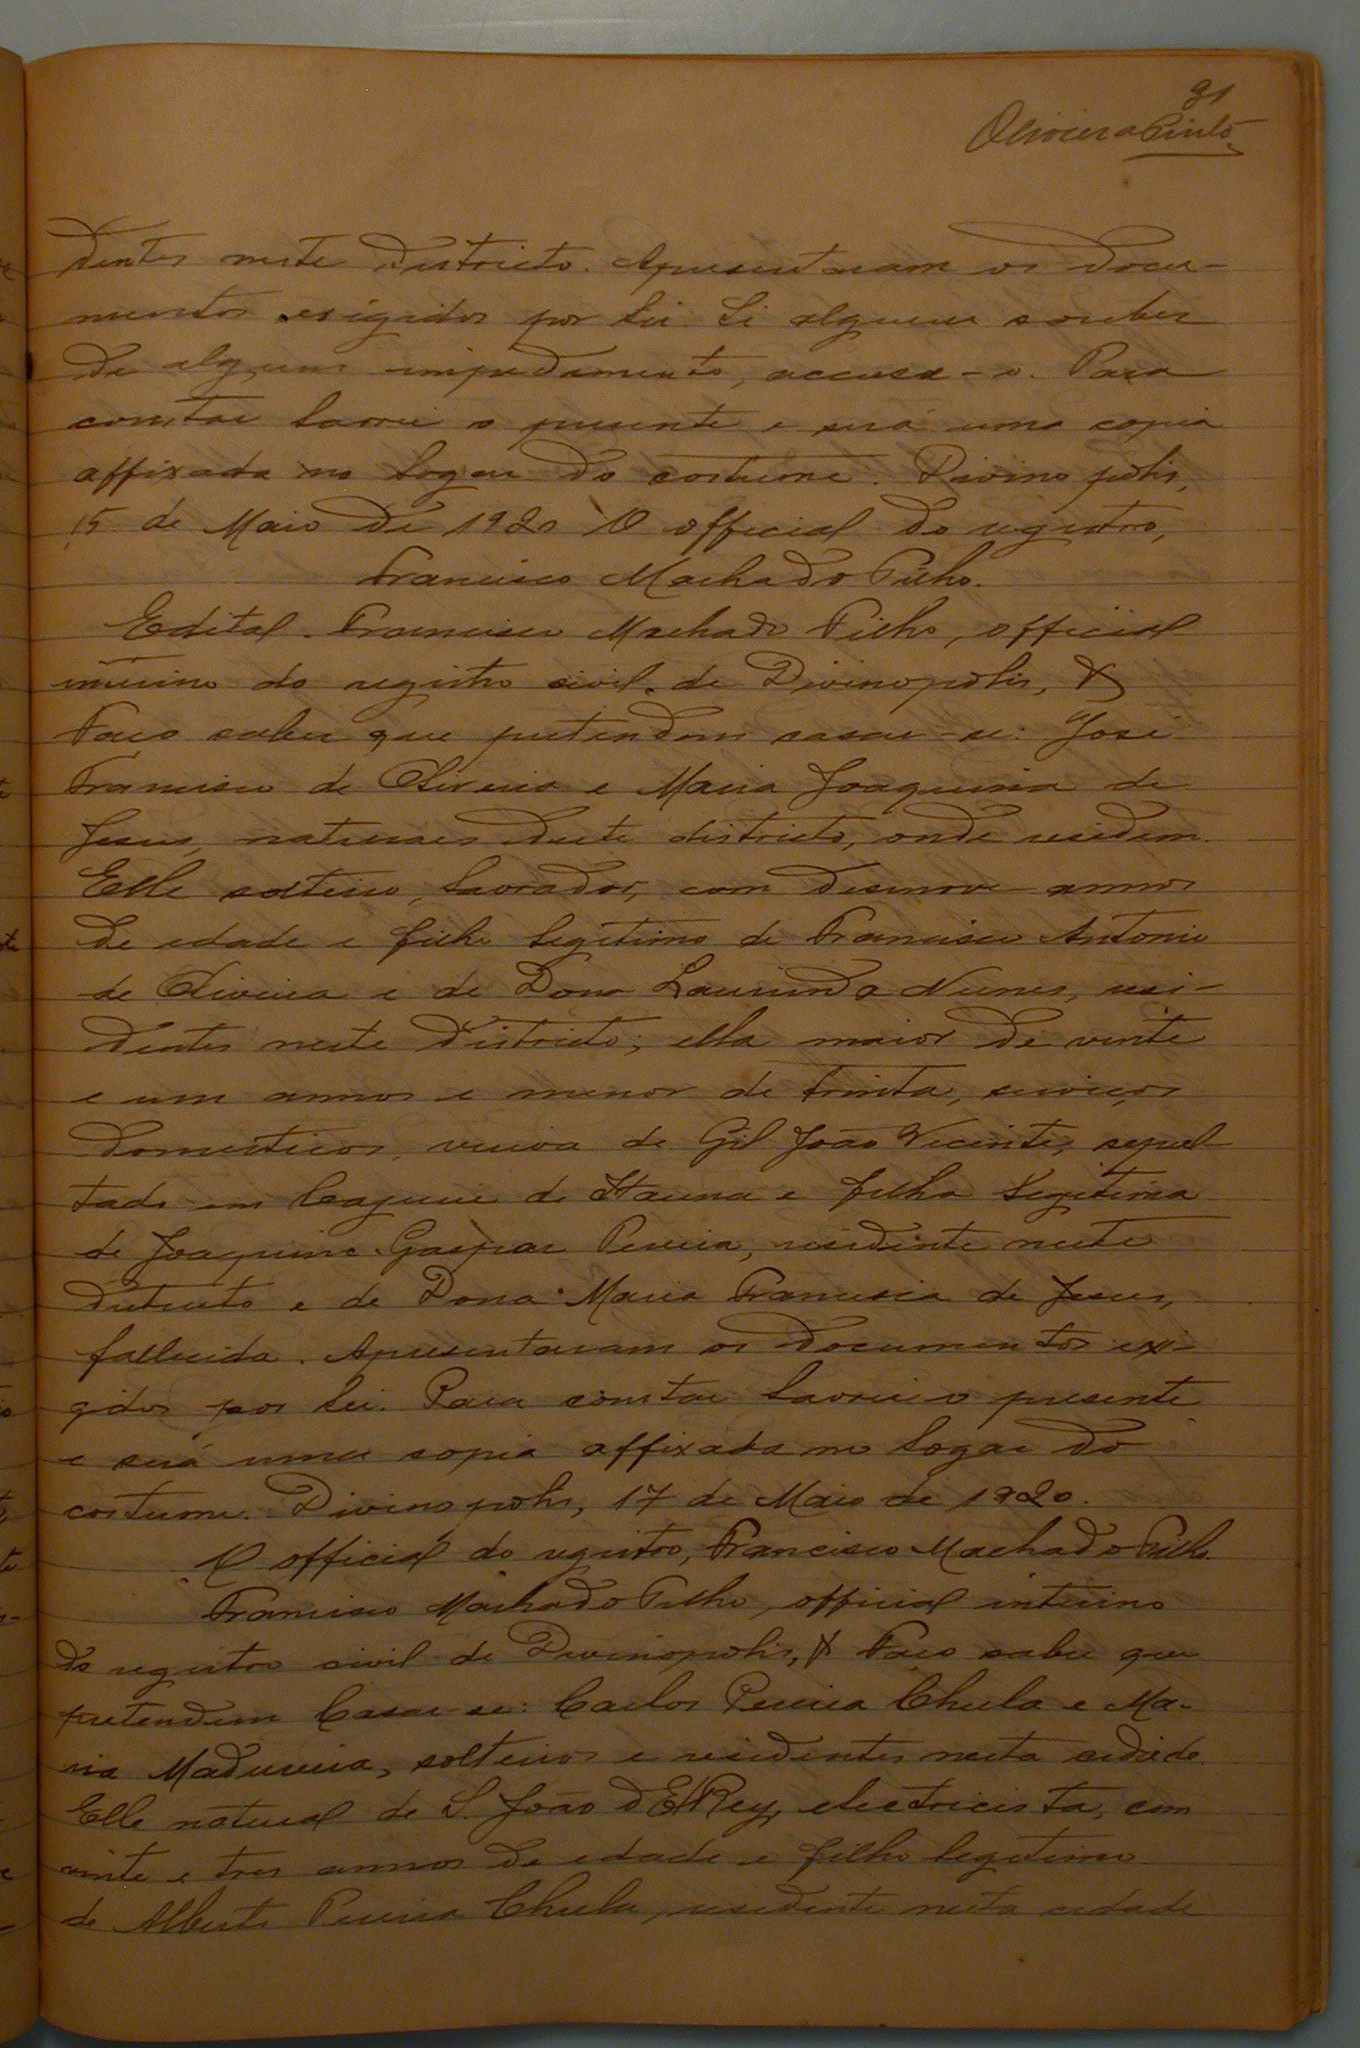 91
Oliveira Pinto
dentes neste districto. Apresentaram os docu-
mentos exigidos por lei. Si alguem souber
de algum impedimento, accuse-o. Para
constar lavrei o presente e será uma copia
affixada no logar do costume. Divinopolis,
15 de Maio de 1920 O official do registro,
Francisco Machado Filho.
Edital. Francisco Machado Filho, official
interino do registro civil de Divinopolis, &
Faço saber que pretendem casar-se: José
Francisco de Oliveira e Maria Joaquina de
Jesus, naturaes deste districto, onde residem.
Elle solteiro, lavrador, com desenove annos
de edade e filho legitimo de Francisco Antonio
de Oliveira e de Dona Laurinda Nunes, resi-
dentes neste districto; ella maior de vinte
e um annos e menor de trinta, serviços
domesticos, viuva de Gil João Vicente, sepul-
tado em Cajurú de Itauna e filha legitima
de Joaquim Gaspar Pereira, residente neste
districto e de Dona Maria Francisca de Jesus,
fallecida. Apresentaram os documentos exi-
gidos por lei. Para constar lavrei o presente
e será uma copia affixada no logar do
costume. Divinopolis, 17 de Maio de 1920.
O official do registro, Francisco Machado Filho.
Francisco Machado Filho, official interino
do registro civil de Divinopolis, & Faço saber que
pretendem Casar-se: Carlos Pereira Chula e Ma-
ria Madureira, solteiros e residentes nesta cidade.
Elle natural de S. João d'El Rey, electricista, com
vinte e tres annos de edade e filho legitimo
de Alberto Pereira Chula, residente nesta cidade